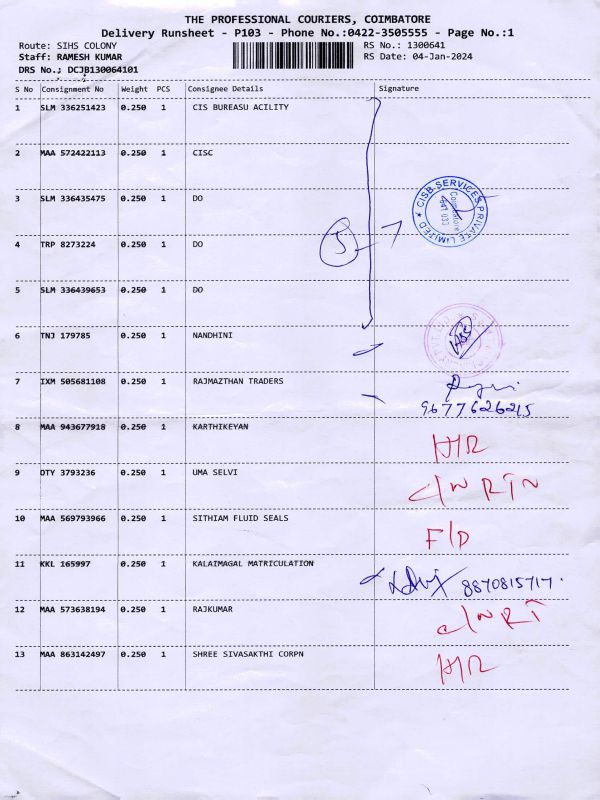 THE PROFESSIONAL COURIERS, COIMBATORE
Delivery Runsheet - P103 - Phone No.:0422-3505555 - Page No.:1
Route: SIHS COLONY
RS No.: 1300641
Staff: RAMESH KUMAR
RS Date: 04-Jan-2024
DRS No.; DCJB130064101
S No Consignment No Weight PCS Consignee Details Signature
1 SLM 336251423 0.250 1 CIS BUREASU ACILITY
2 MAA 572422113 0.250 1 CISC
3 SLM 336435475 0.250 1 DO
CISB SERVICES PRIVATE LIMITED
Coimbatore
641 033
4 TRP 8273224 0.250 1 DO
5
5 SLM 336439653 0.250 1 DO
6 TNJ 179785 0.250 1 NANDHINI
7 IXM 505681108 0.250 1 RAJMAZTHAN TRADERS
9677626215
8 MAA 943677918 0.250 1 KARTHIKEYAN H/R
9 OTY 3793236 0.250 1 UMA SELVI C/N RTN
10 MAA 569793966 0.250 1 SITHIAM FLUID SEALS F/D
11 KKL 165997 0.250 1 KALAIMAGAL MATRICULATION 8870815717.
12 MAA 573638194 0.250 1 RAJKUMAR C/N RT
13 MAA 863142497 0.250 1 SHREE SIVASAKTHI CORPN H/R